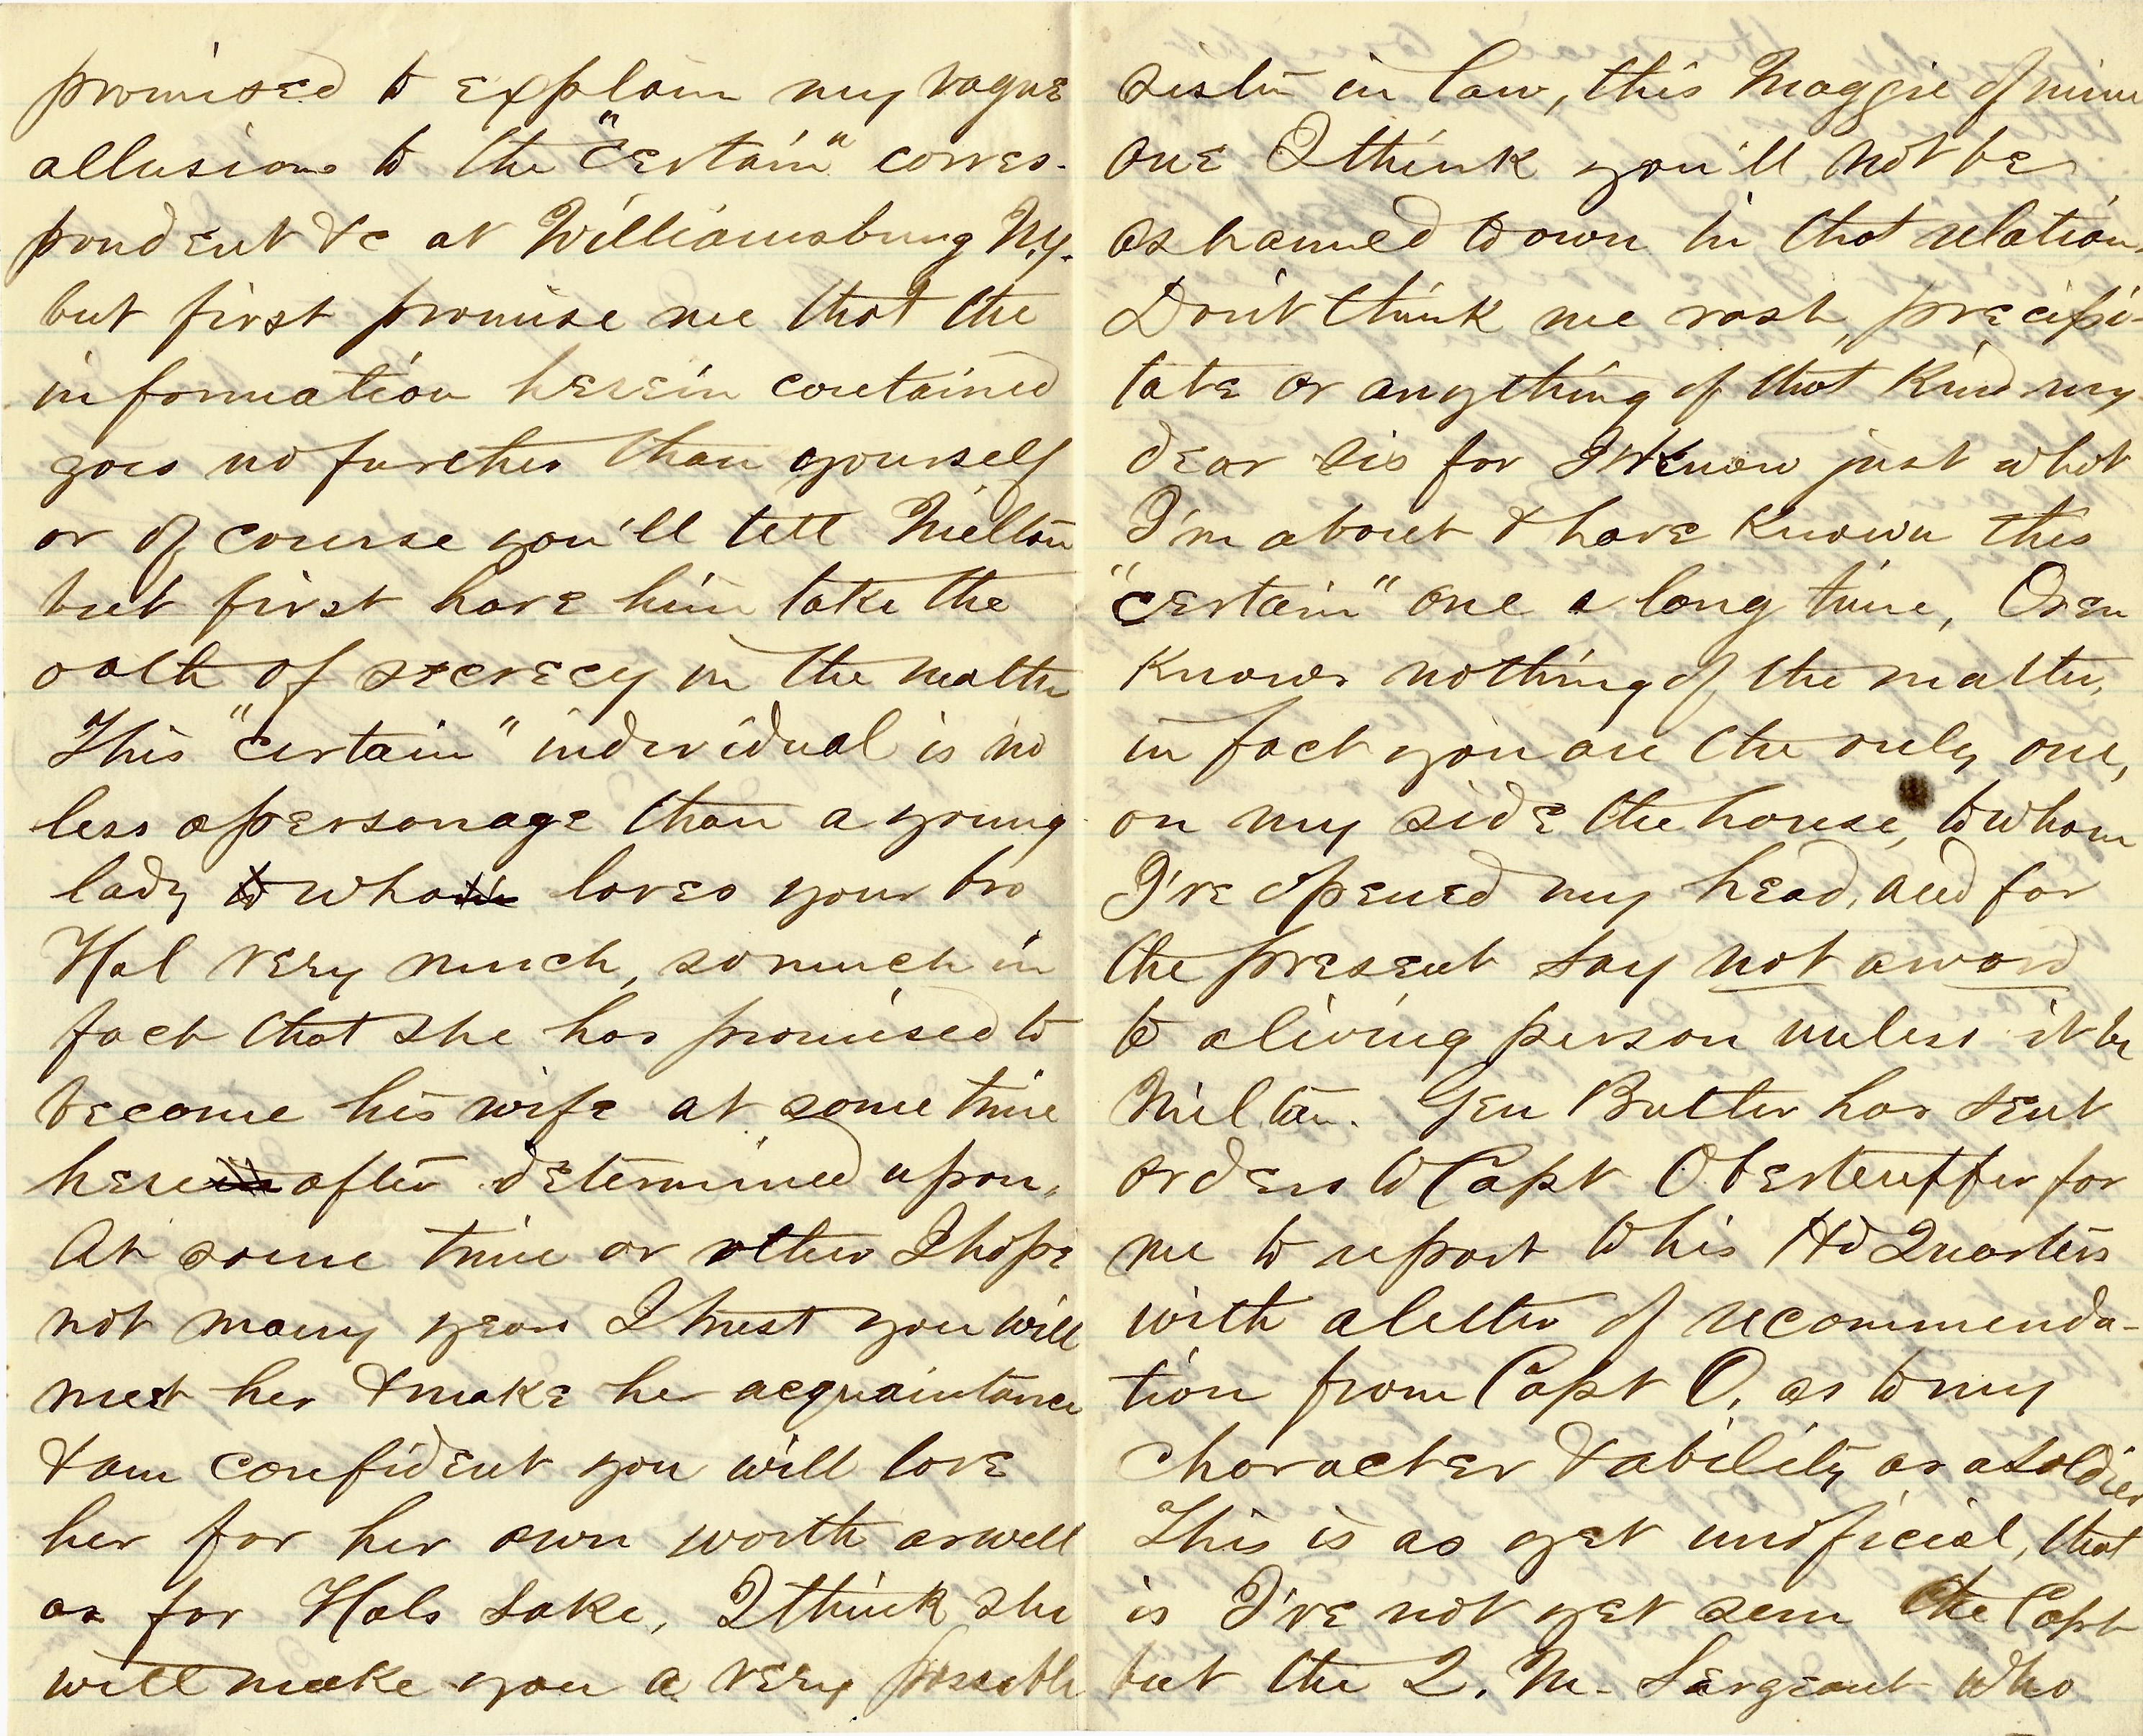 promised to explain my vague
allusions to the "certain" corres-
pondent &c at Williamsburg N.Y.
but first promise me that the
information herein contained
goes no further than yourself
or of course you'll tell Milton
but first have him take the
oath of secrecy in the matter
This "certain" individual is no
less a personage than a young
lady to whom loves your bro
Hal very much, so much in
fact that she has promised to
become his wife at some time
herein after determined upon,
At some time or other I hope
not many years I trust you will
meet her & make her acquaintance
& am confident you will love
her for her own worth as well
as for Hals sake, I think she
will make you a very possible
sister in law, this Maggie of mine
one I think you'll not be
ashamed to own in that relation.
Don't think me rash, precipi-
tate or anything of that kind my
dear sis for I know just what
I'm about & have known this
"certain" one a long time, Oren
knows nothing of the matter,
in fact you are the only one,
on my side the house, to whom
I've opened my head, and for
the present say not a word
to a living person unless it be
Milton. Gen Butler has sent
orders to Capt Oberteuffer for
me to report to his Hd Quarters
with a letter of recommenda-
tion from Capt O. as to my
character & ability as a soldier
This is as yet unoficial, that
is I've not yet seen the Capt
but the Q. M. Sargeant who